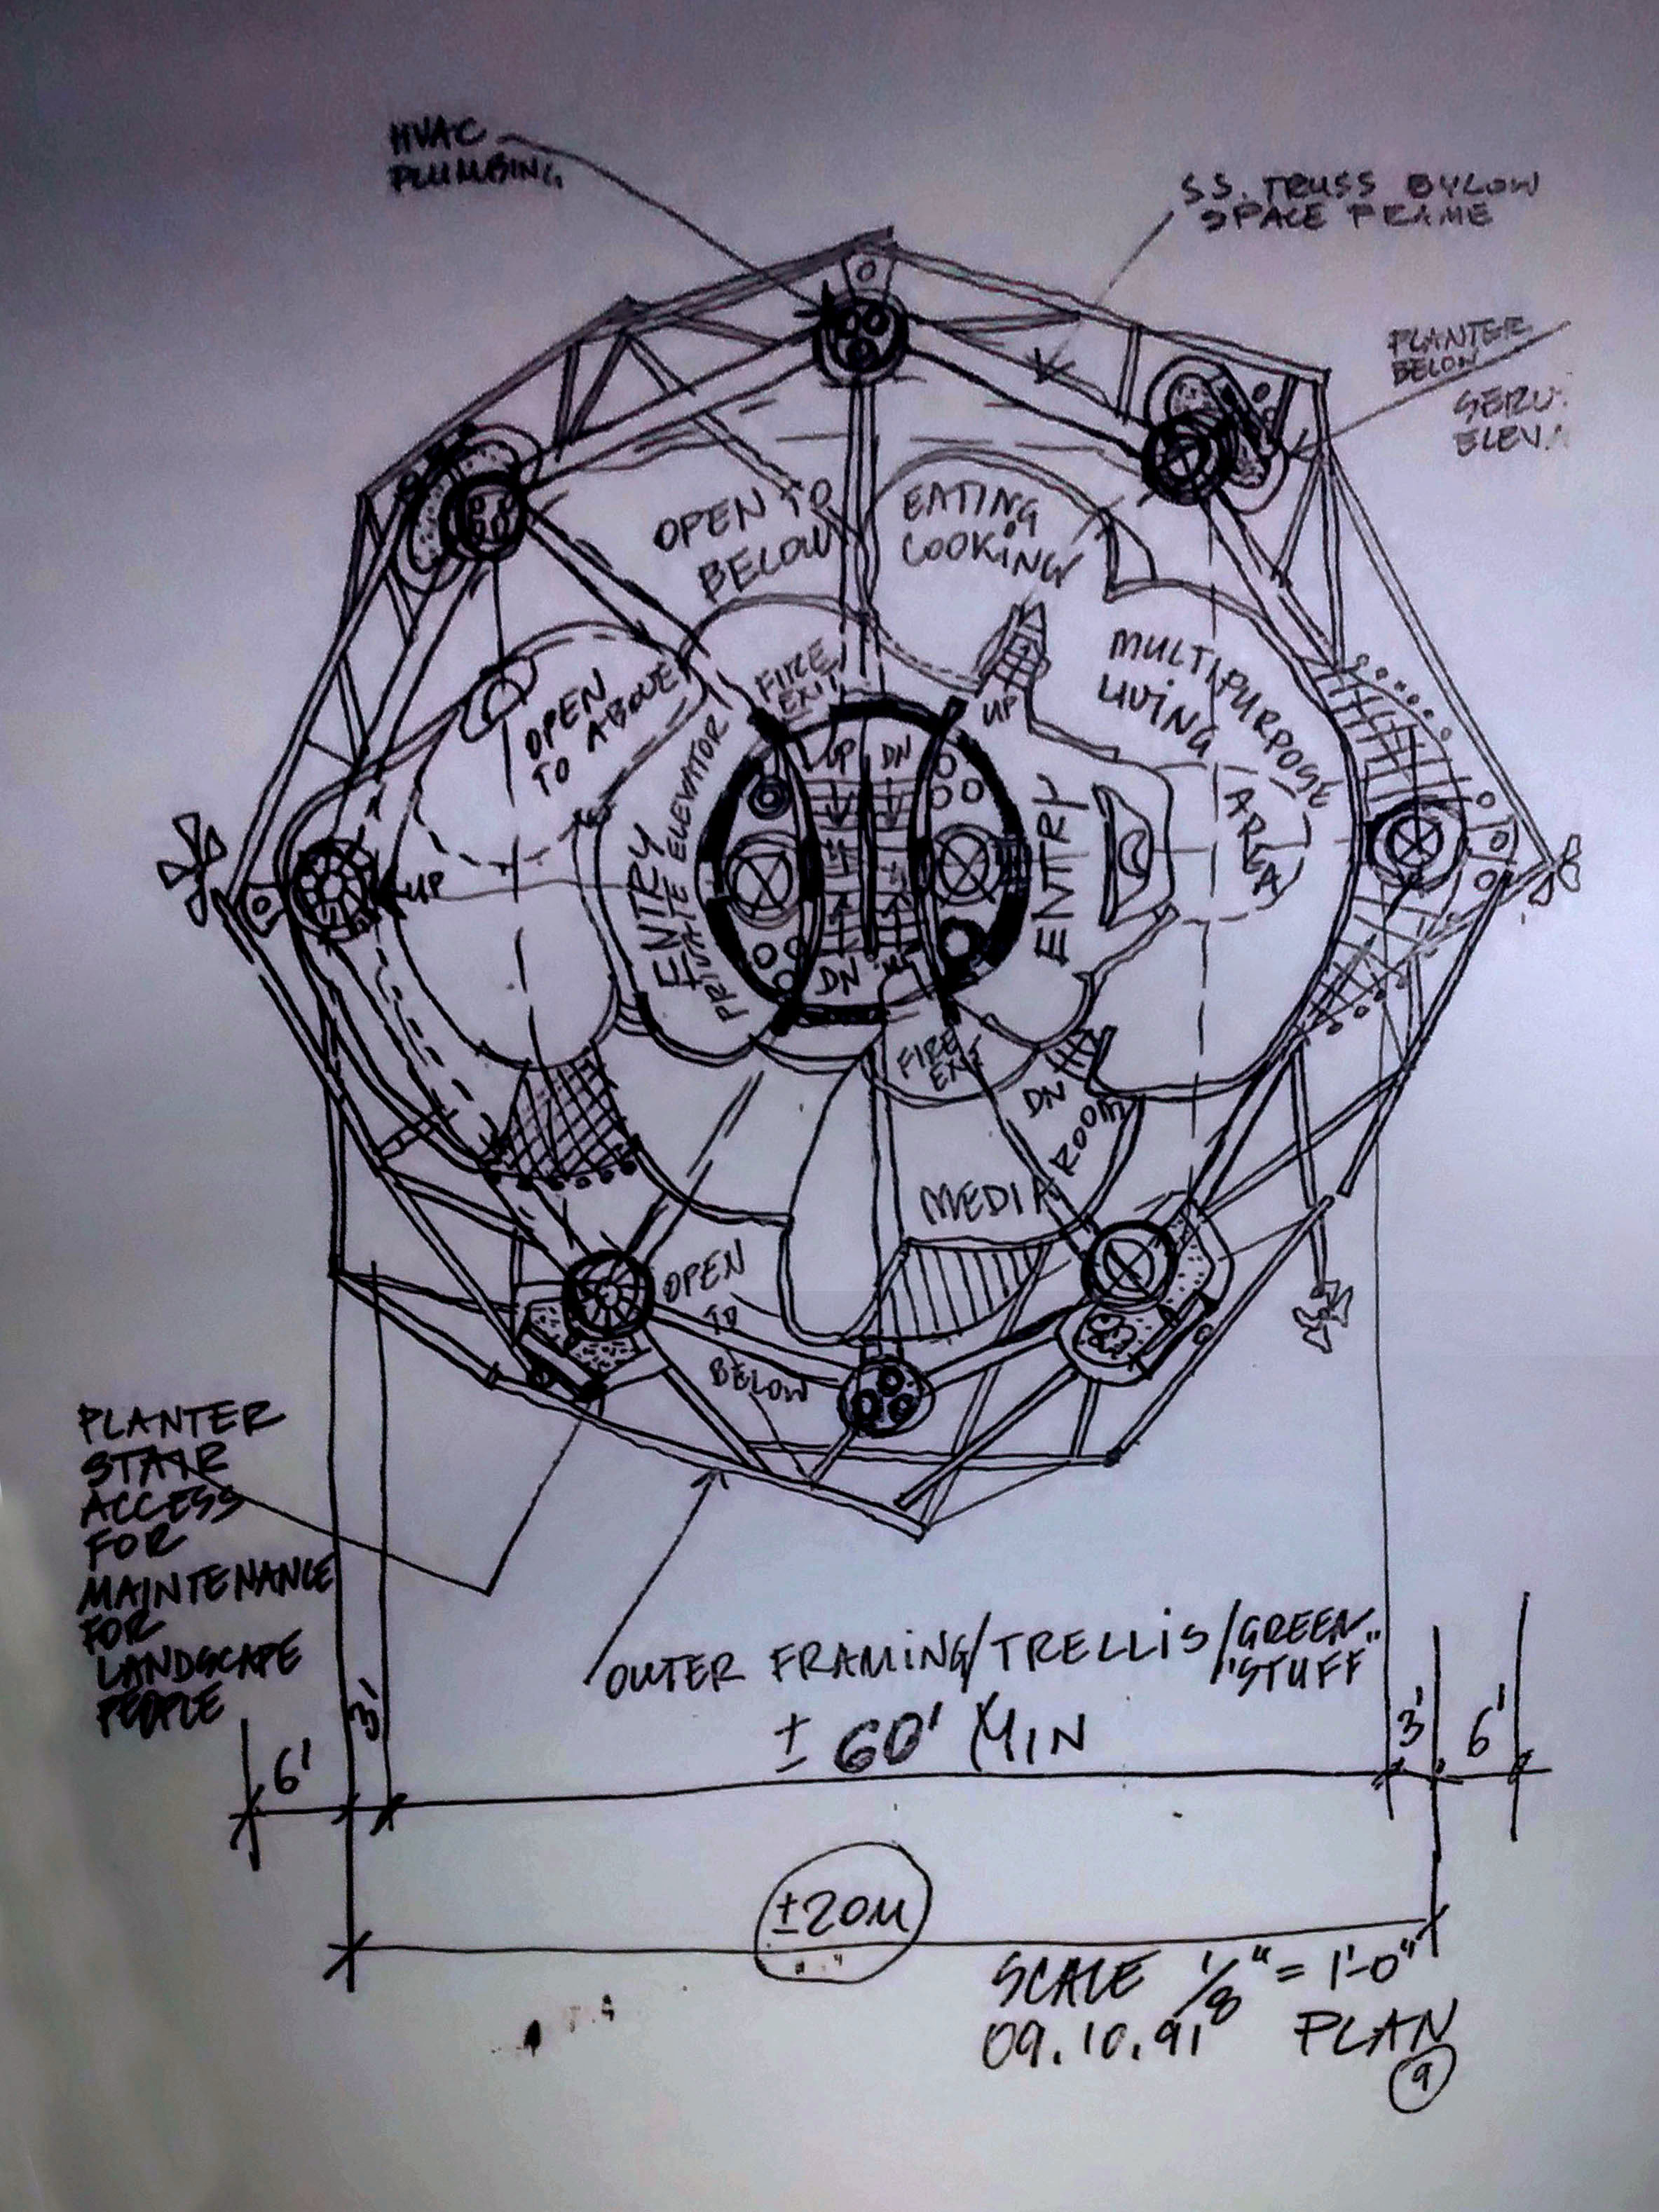 HVAC
PLUMBING
S.S. TRUSS BYLOW
SPACE FRAME
PLANTER
BELOW
SERV.
ELEV.
OPEN TO
BELOW
EATING
COOKING
OPEN
TO ABOVE
FIRE
EXIT
UP
MULTIPURPOSE
LIVING
AREA
UP DN
ENTRY
PRIVATE ELEVATOR
ENTRY
UP
DN UP
FIRE
EXIT
DN
MEDIA ROOM
OPEN
TO
BELOW
PLANTER
STAIR
ACCESS
FOR
MAINTENANCE
FOR
LANDSCAPE
PEOPLE
OUTER FRAMING/TRELLIS/GREEN
"STUFF"
± 60' MIN
6' 3' 3' 6'
±20M
SCALE 1/8" = 1'-0"
09.10.91 PLAN
9